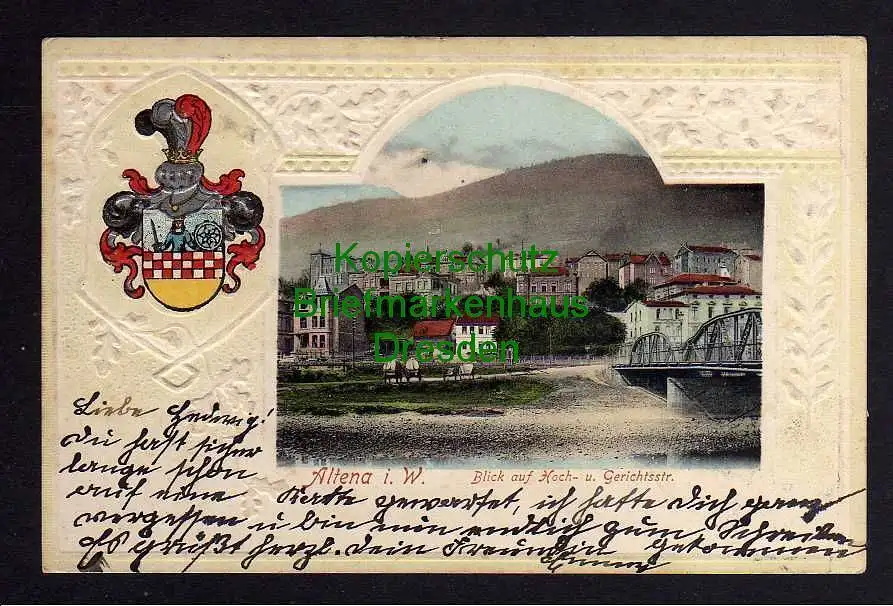 Kopierschutz
Briefmarkenhaus
Dresden
Altena i. W.
Blick auf Hoch- u. Gerichtsstr.
Liebe Hedwig!
du hast sicher
lange schon
auf eine Karte gewartet, ich hatte Dich ganz
vergessen u bin nun endlich zum Schreiben
gekommen
Es grüßt herzl. dein Freundin